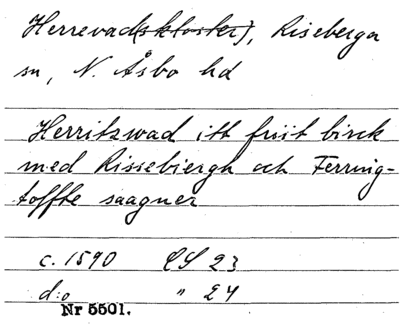 Herrevad(skloster), Riseberga
sn, N. Åsbo hd
Herritzwad itt friit birck
med Rissebiergh och Ferring-
toffte saagner
c. 1590 LS 23
d:o " 24
Nr 5501.